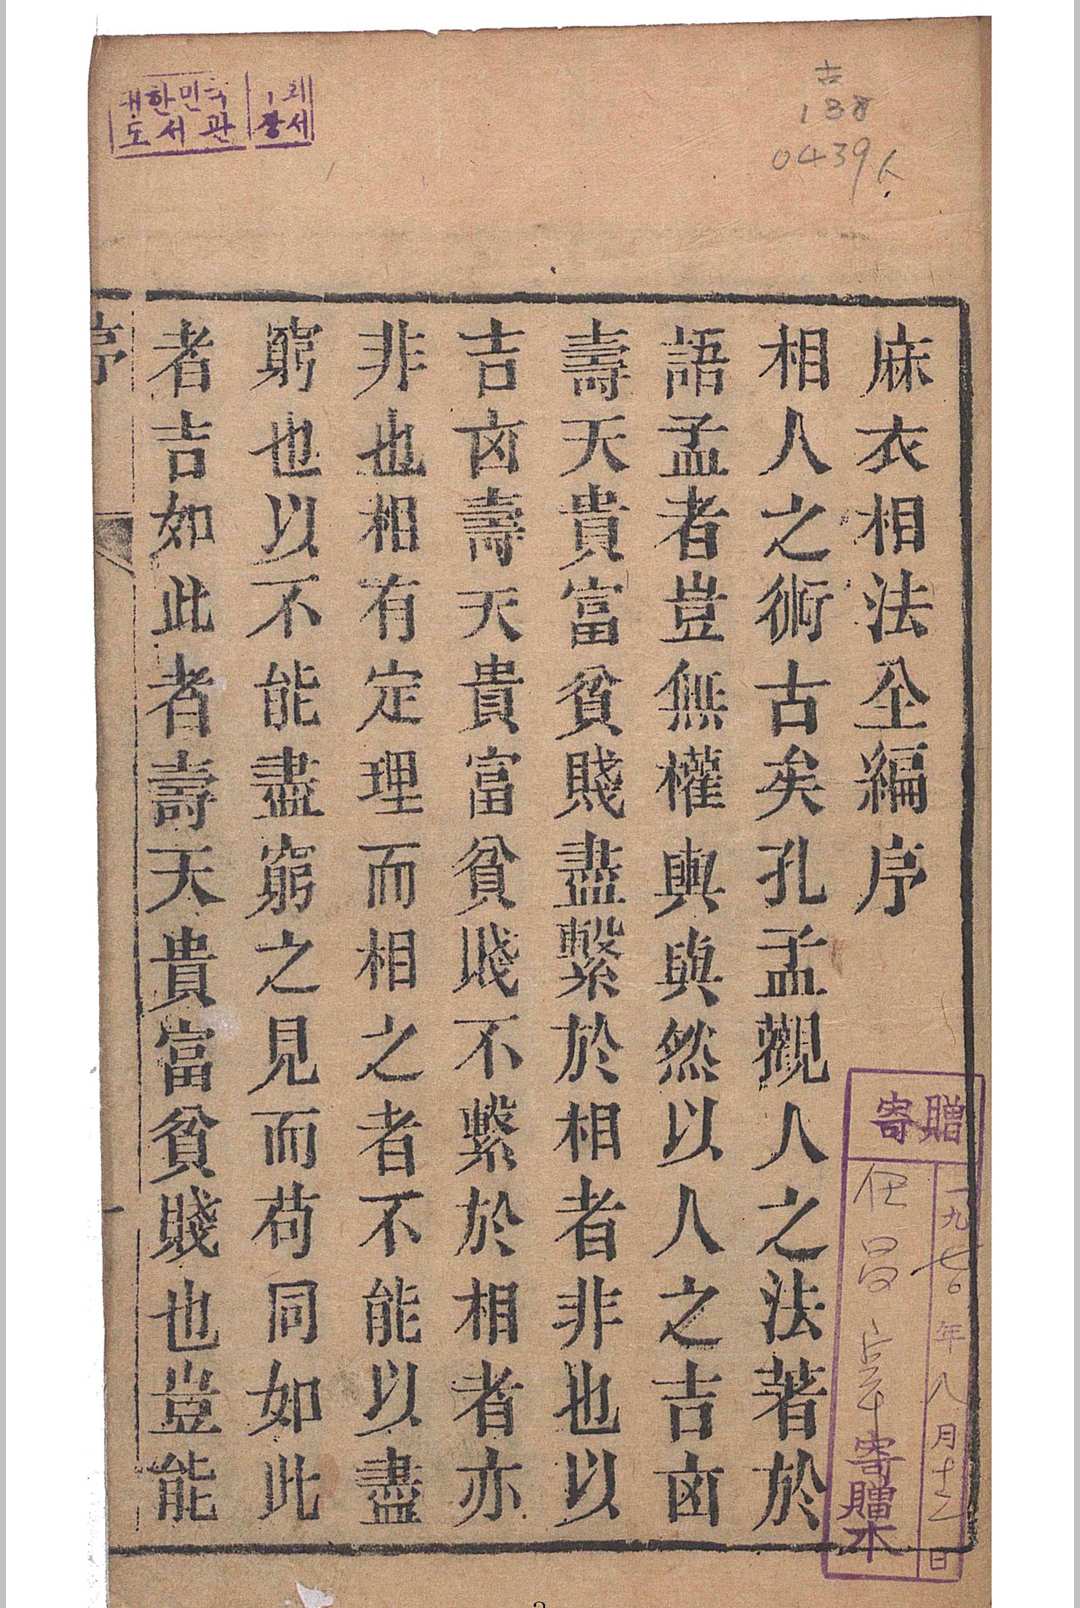 古
138
0439
대한민국 국회
도서관 장서
麻衣相法全編序
相人之術古矣孔孟觀人之法著於
語孟者豈無權輿與然以人之吉凶
壽夭貴富貧賤盡繫於相者非也以
吉凶壽夭貴富貧賤不繫於相者亦
非也相有定理而相之者不能以盡
窮也以不能盡窮之見而苟同如此
者吉如此者壽夭貴富貧賤也豈能
序
一
寄贈
一九七〇年八月十二日
寄贈本
2